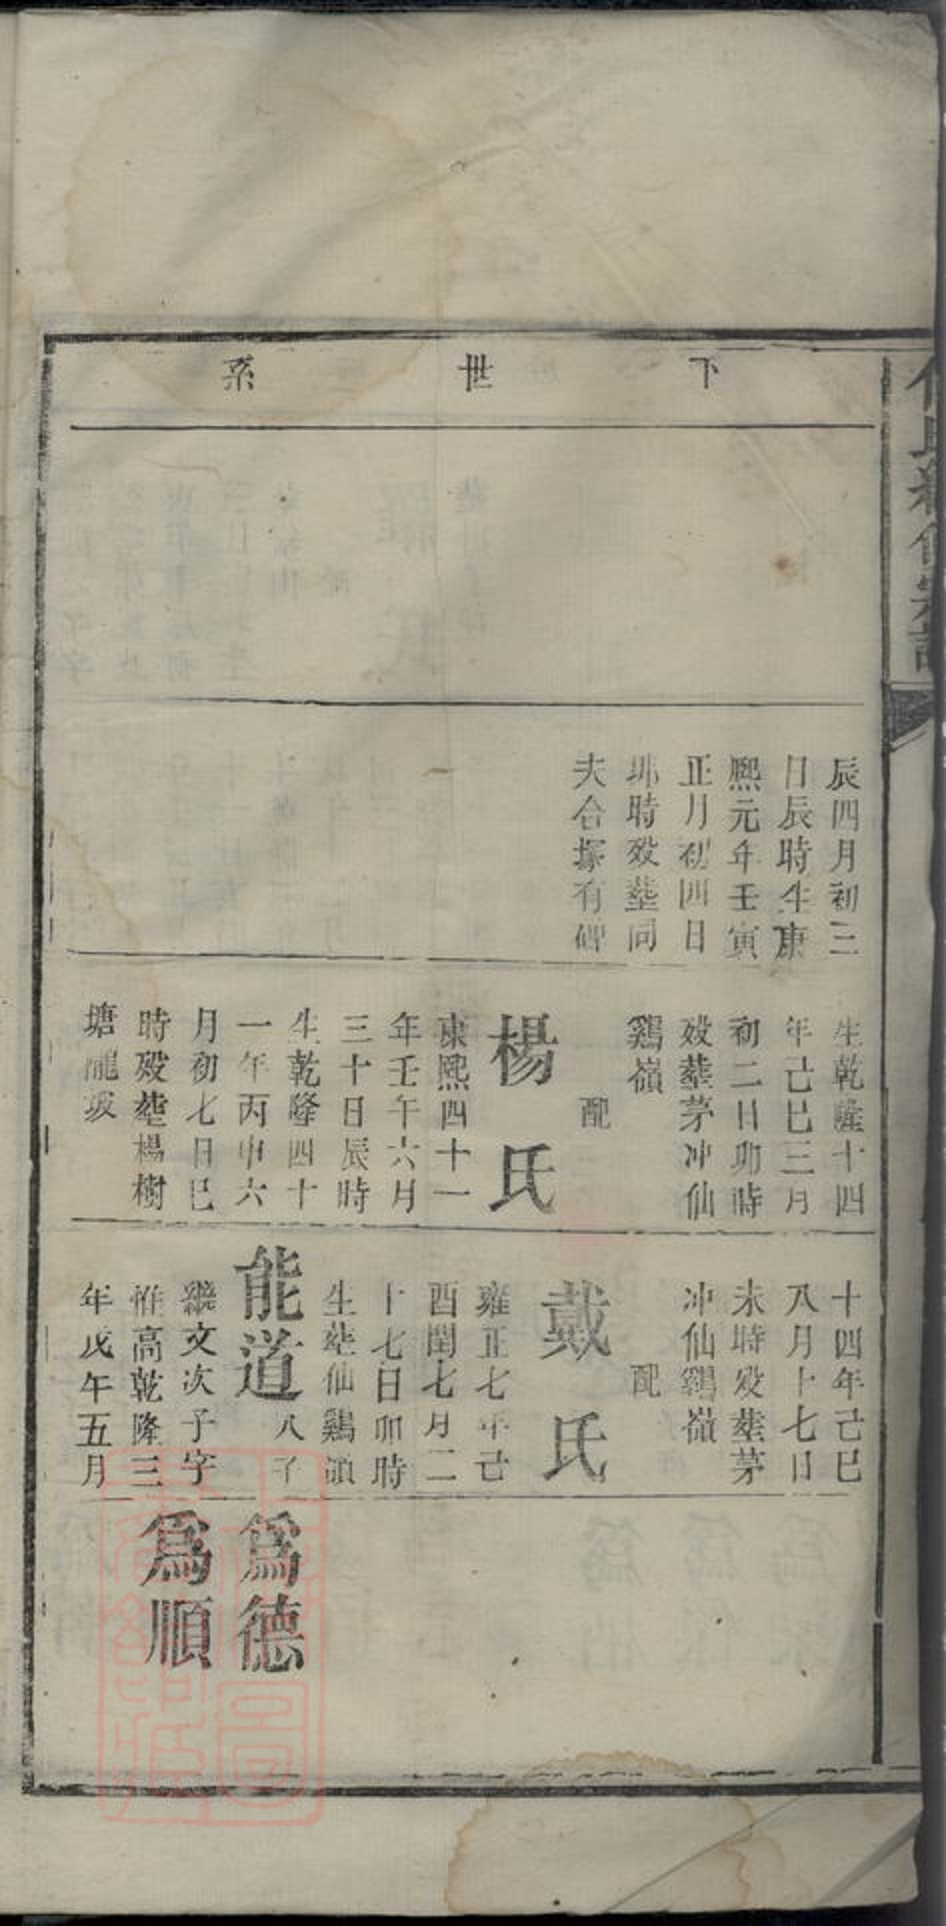 下世系
辰四月初三
日辰時生康
熙元年壬寅
正月初四日
時殁塟同
夫合塚有碑
生乾隆十四
年己巳三月
初二日卯時
殁塟茅冲仙
鷄嶺
配
楊氏
康熙四十一
年壬午六月
三十日辰時
生乾隆四十
一年丙申六
月初七日巳
時殁塟楊樹
塘隴坡
十四年己巳
八月十七日
未時殁塟茅
冲仙鷄嶺
配
戴氏
雍正七年己
酉閏七月二
十七日卯時
生塟仙鷄嶺
能道
八子
文次子字
惟高乾隆三
年戊午五月
爲德
爲順